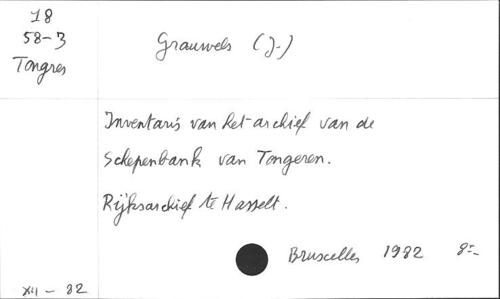 18
58-3
Tongres
Grauwels (J.)
Inventaris van het archief van de
Schepenbank van Tongeren.
Rijksarchief te Hasselt.
Bruxelles 1982 8°-
XII - 82